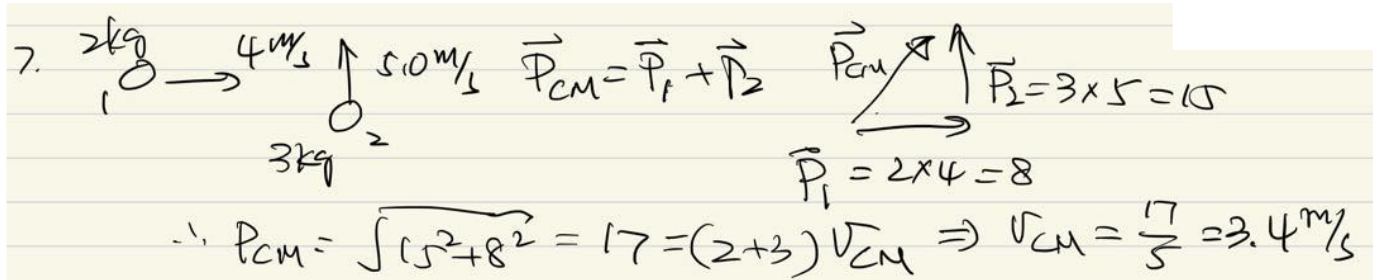 7. 2kg 1 → 4m/s ↑ 5.0m/s 3kg 2 P⃗_CM = P⃗_1 + P⃗_2 P⃗_CM P⃗_2 = 3×5 = 15
P⃗_1 = 2×4 = 8
∴ P_CM = √(15²+8²) = 17 = (2+3) V_CM ⇒ V_CM = 17/5 = 3.4 m/s